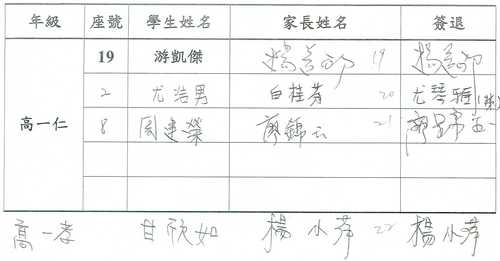 年級 座號 學生姓名 家長姓名 簽退
19 游凱傑 19
2 尤浩男 白桂芳 20 尤琴雅(姊)
高一仁
8 周建榮 廖錦云 21 廖錦云
高一孝 甘欣如 楊小萍 22 楊小萍